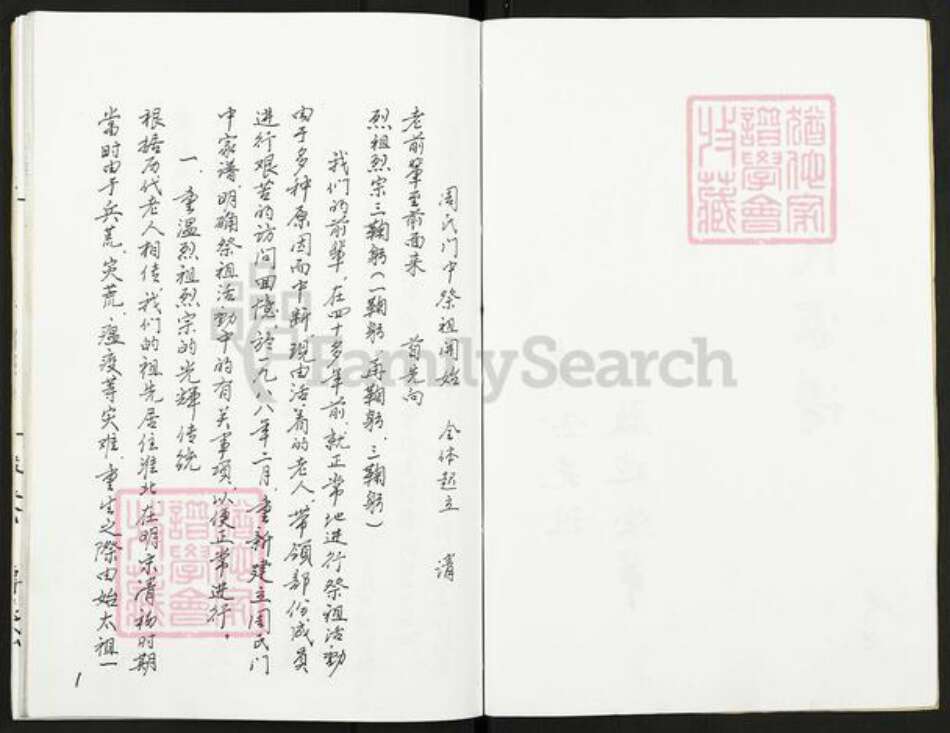 周氏门中祭祖開始 全体起立 请
老前輩至前面来 首先向
烈祖烈宗三鞠躬(一鞠躬、再鞠躬、三鞠躬)
我们的前輩,在四十多年前,就正常地进行祭祖活動
由于多种原因而中断,现由活着的老人,带领部份成員
进行艰苦的访问回憶,於一九八八年二月,重新建立周氏门
中家谱,明确祭祖活动中的有关事项,以便正常进行。
一、重温烈祖烈宗的光輝传统
根据历代老人相传,我们的祖先居住淮北,在明末清初时期
当时由于兵荒、灾荒、瘟疫等灾难,重生之际由始太祖一
1
猶他家
譜學會
收藏
猶他家
譜學會
收藏
FamilySearch